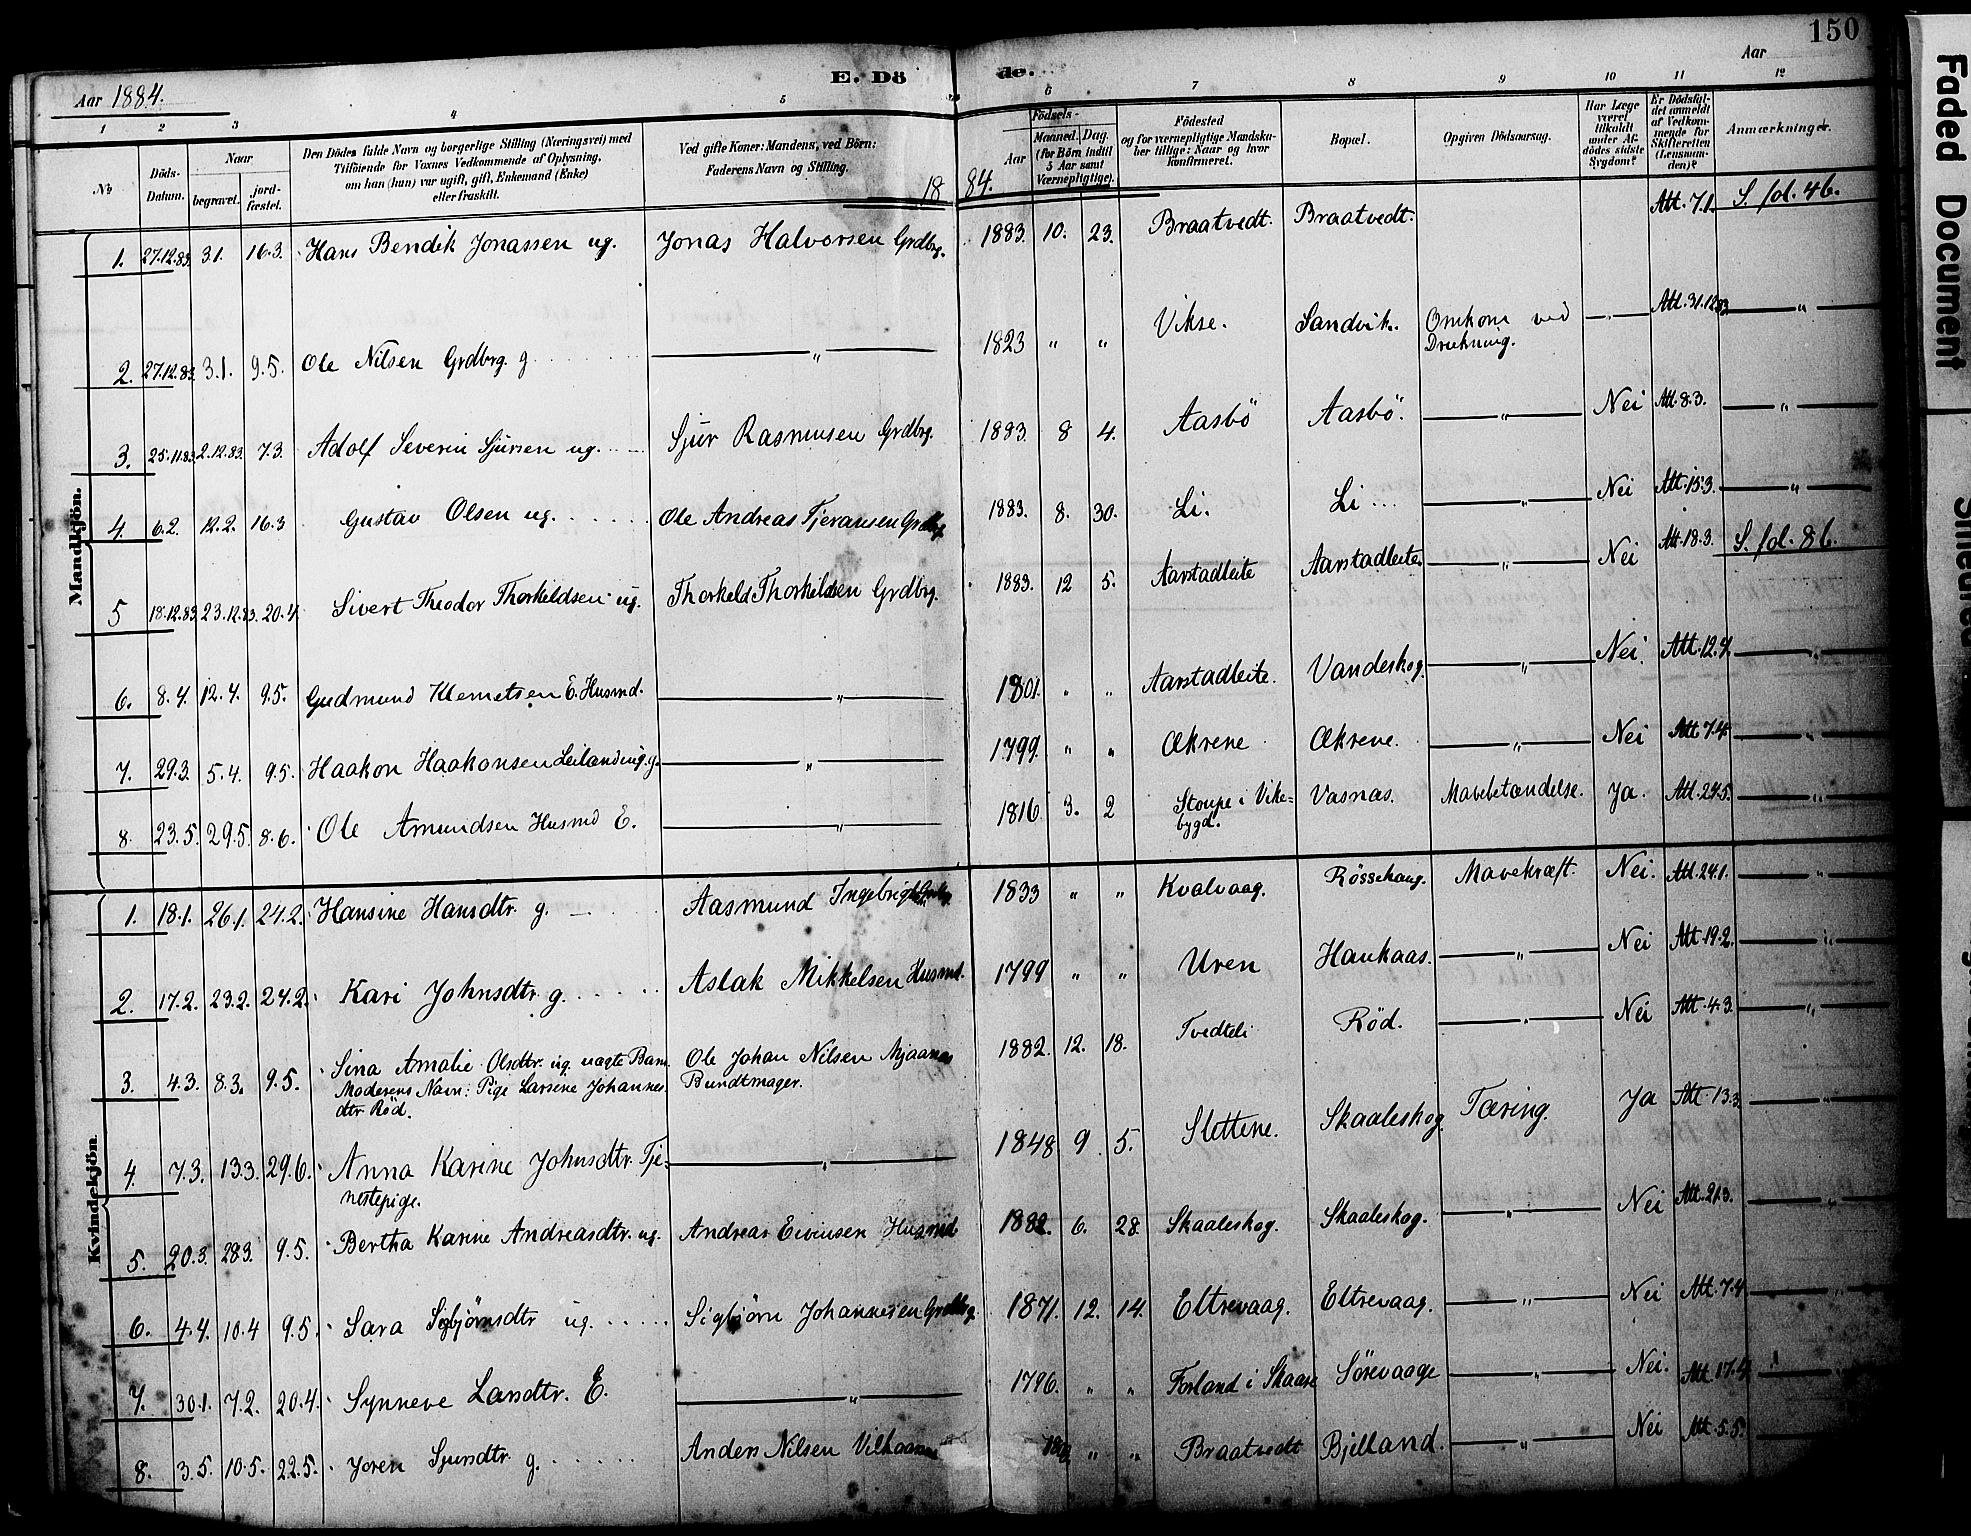 150
Aar 1884.
E. Dö
de.
Aar
1 2 3 4 5 6 7 8 9 10 11 12
No
Döds-Datum.
Naar
begravet.
jord-fæstet.
Den Dödes fulde Navn og borgerlige Stilling (Næringsvei) med
Tilföiende for Voxnes Vedkommende af Oplysning,
om han (hun) var ugift, gift, Enkemand (Enke)
eller fraskilt.
Ved gifte Koner: Mandens, ved Börn:
Faderens Navn og Stilling.
Födsels-
Aar
Maaned. Dag.
(for Börn indtil
5 Aar samt
Værnepligtige).
Födested
og for værnepligtige Mandska-
ber tillige: Naar og hvor
konfirmeret.
Bopæl.
Opgiven Dödsaarsag.
Har Læge
været
tilkaldt
under Af-
dödes sidste
Sygdom?
Er Dödsfal-
det anmeldt
af Vedkom-
mende for
Skifteretten
(Lensman-
den)?
Anmærkninger.
18 84.
Mandkjön.
1. 27.12.83. 3.1. 16.3. Hans Bendik Jonassen ug. Jonas Halvorsen Grdbrg. 1883. 10. 23. Braatvedt. Braatvedt. Att. 7.1. S. fol. 46.
2. 27.12.83. 3.1. 9.5. Ole Nilsen Grdbrg. g. " 1823 " " Vikse. Sandvik. Omkom ved Drukning. " Att. 31.12.83 "
3. 25.11.83 2.12.83. 7.3. Adolf Severin Sjursen ug. Sjur Rasmusen Grdbrg. 1883. 8 4. Aasbö Aasbö. " Nei Att. 8.3. "
4. 6.2. 12.2. 16.3 Gustav Olsen ug. Ole Andreas Tjeransen Grdbrg 1883. 8. 30. Li. Li " Nei Att. 15.3. "
5 18.12.83 23.12.83. 20.4. Sivert Theodor Thorkildsen ug. Thorkeld Thorkildsen Grdbrg. 1883. 12 5. Aarstadleite Aarstadleite. " Nei Att. 18.3. S. fol. 86.
6. 8.4. 12.4. 9.5. Gudmund Klemetsen E. Husmd. " 1801. " " Aarstadleite. Vandeskog. " Nei. Att. 12.4. "
7. 29.3. 5.4. 9.5. Haakon Haakonsen Leilending. g. " 1799. " " Økrene Økrene. " Nei Att. 7.4. "
8. 23.5. 29.5. 8.6. Ole Amundsen Husmd E. " 1816 3. 2 Stoupe i Vike=bygd. Vasnas. Mavebetændelse. Ja. Att. 24.5. "
Kvindekjön
1. 18.1. 26.1. 24.2. Hansine Hansdtr. g. Aasmund 1833 " " Kvalvaag. Rössehaug. Mavekræft. Nei. Att. 24.1. "
2. 17.2. 23.2. 24.2. Kari Johnsdtr. g. Aslak Mikkelsen Husmd. 1799 " " Uren Haukaas. " Nei Att. 19.2. "
3. 4.3. 8.3. 9.5. Sina Amalie Olsdtr. ug. uægte Barn. Ole Johan Nilsen 1882. 12. 18. Tvedteli Röd. " Nei Att. 4.3. "
Moderens Navn: Pige Larsine Johannes- Bundtmager.
dtr Röd.
4. 7.3. 13.3. 29.6. Anna Karine Johnsdtr. Tje- " 1848 9. 5. Slettene. Skaaleskog. Tæring. Ja Att. 13.3. "
nestepige.
5. 20.3. 28.3. 9.5. Bertha Karine Andreasdtr. ug. Andreas Eivinsen Husmd. 1882. 6. 28. Skaaleskog. Skaaleskog. " Nei Att. 21.3. "
6. 4.4. 10.4 9.5. Sara Sigbjörnsdtr ug. Sigbjörn Johannesen Grdbrg. 1871. 12. 14. Eltrevaag. Eltrevaag. " Nei Att. 7.4 "
7. 30.1. 7.2. 20.4. Synneve Larsdtr. E. " 1796. " " Forland i Skaare Sörevaage " Nei. Att. 17.4 "
8. 3.5. 10.5. 22.5. Joren Sjursdtr g. Anders Nilsen " " Braatvedt Bjelland. " Nei Att. 5.5.
Faded Document